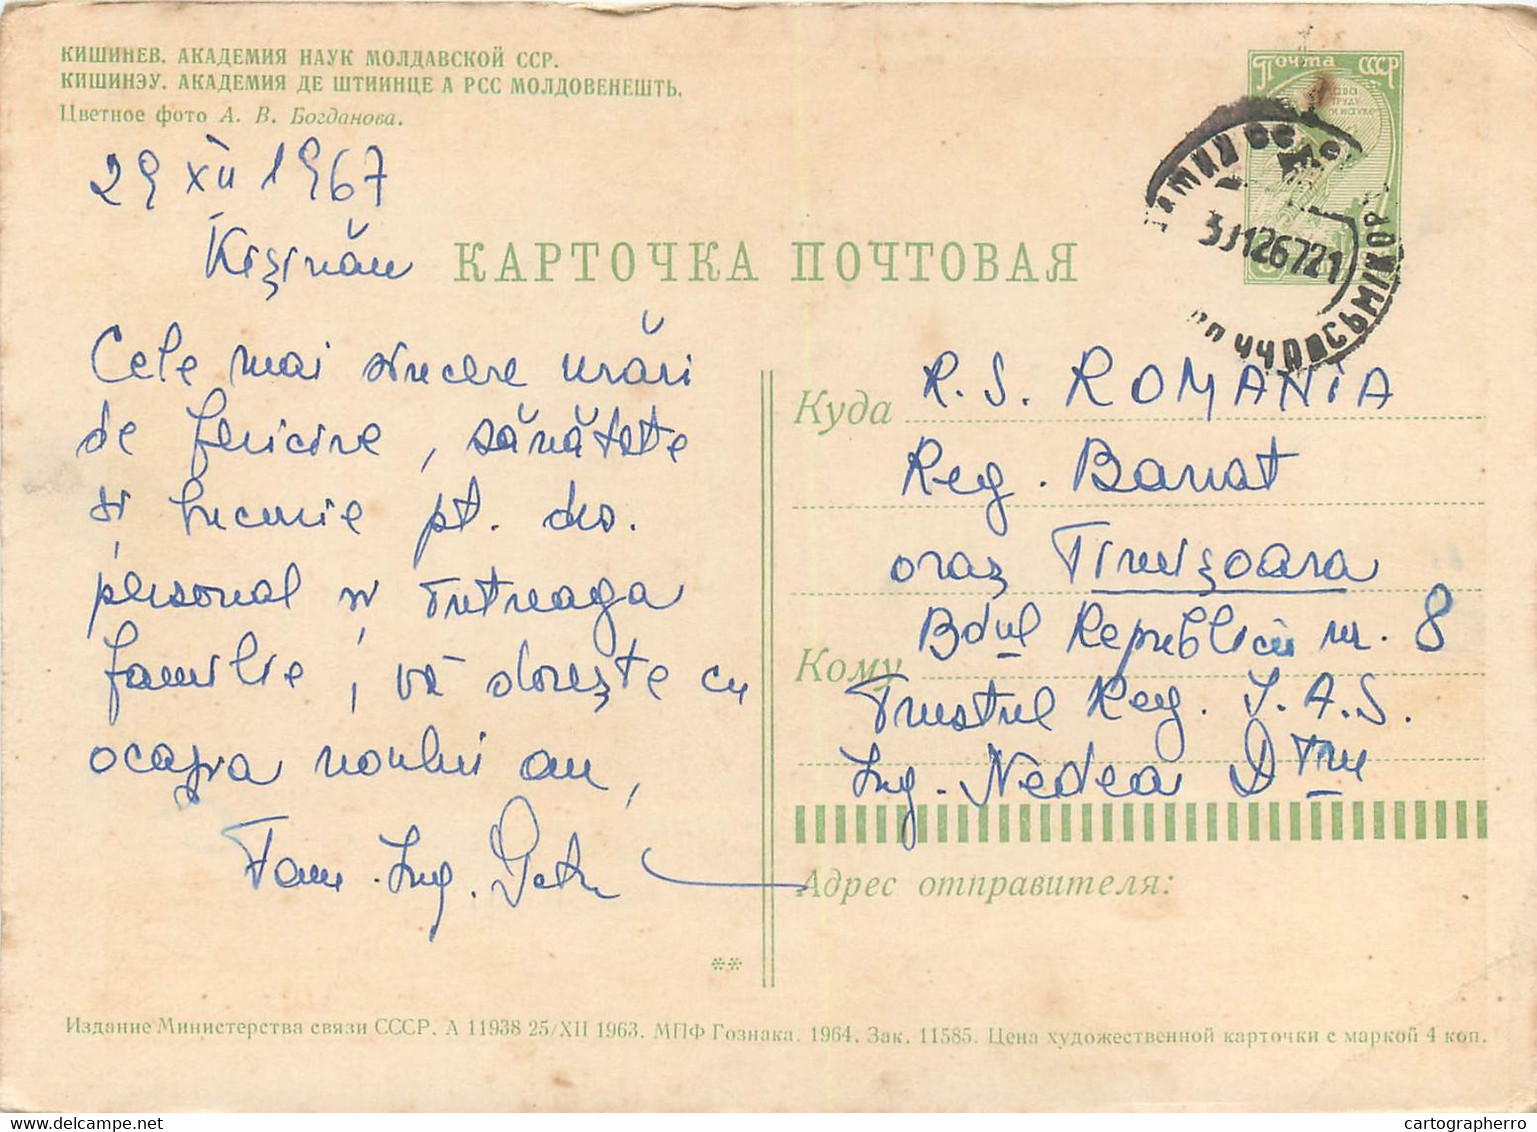 КИШИНЕВ. АКАДЕМИЯ НАУК МОЛДАВСКОЙ ССР.
КИШИНЭУ. АКАДЕМИЯ ДЕ ШТИИНЦЕ А РСС МОЛДОВЕНЕШТЬ.
Цветное фото А. В. Богданова.
29 XII 1967
Kișinău
КАРТОЧКА ПОЧТОВАЯ
Cele mai sincere urări
de fericire, sănătate
și bucurie pt. dvs.
personal și întreaga
familie, vă dorește cu
ocazia noului an,
Fam. Ing. Petru
Почта СССР
301267 21
Куда R. S. ROMANIA
Reg. Banat
oraș Timișoara
Bdul Republicii nr. 8
Кому
Trustul Reg. I.A.S.
Ing. Nedea Dtru
Адрес отправителя:
**
Издание Министерства связи СССР. А 11938 25/XII 1963. МПФ Гознака. 1964. Зак. 11585. Цена художественной карточки с маркой 4 коп.
cartographerro